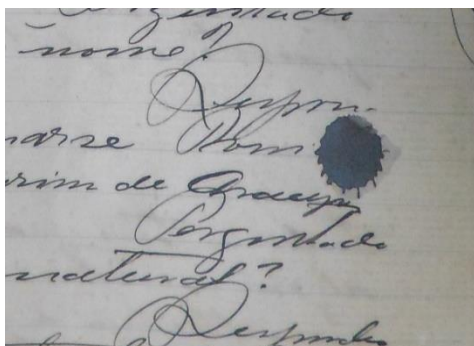 Perguntado
nome?
Respon
marse Rom
rim de Araujo
Perguntado
natural?
Respondeu